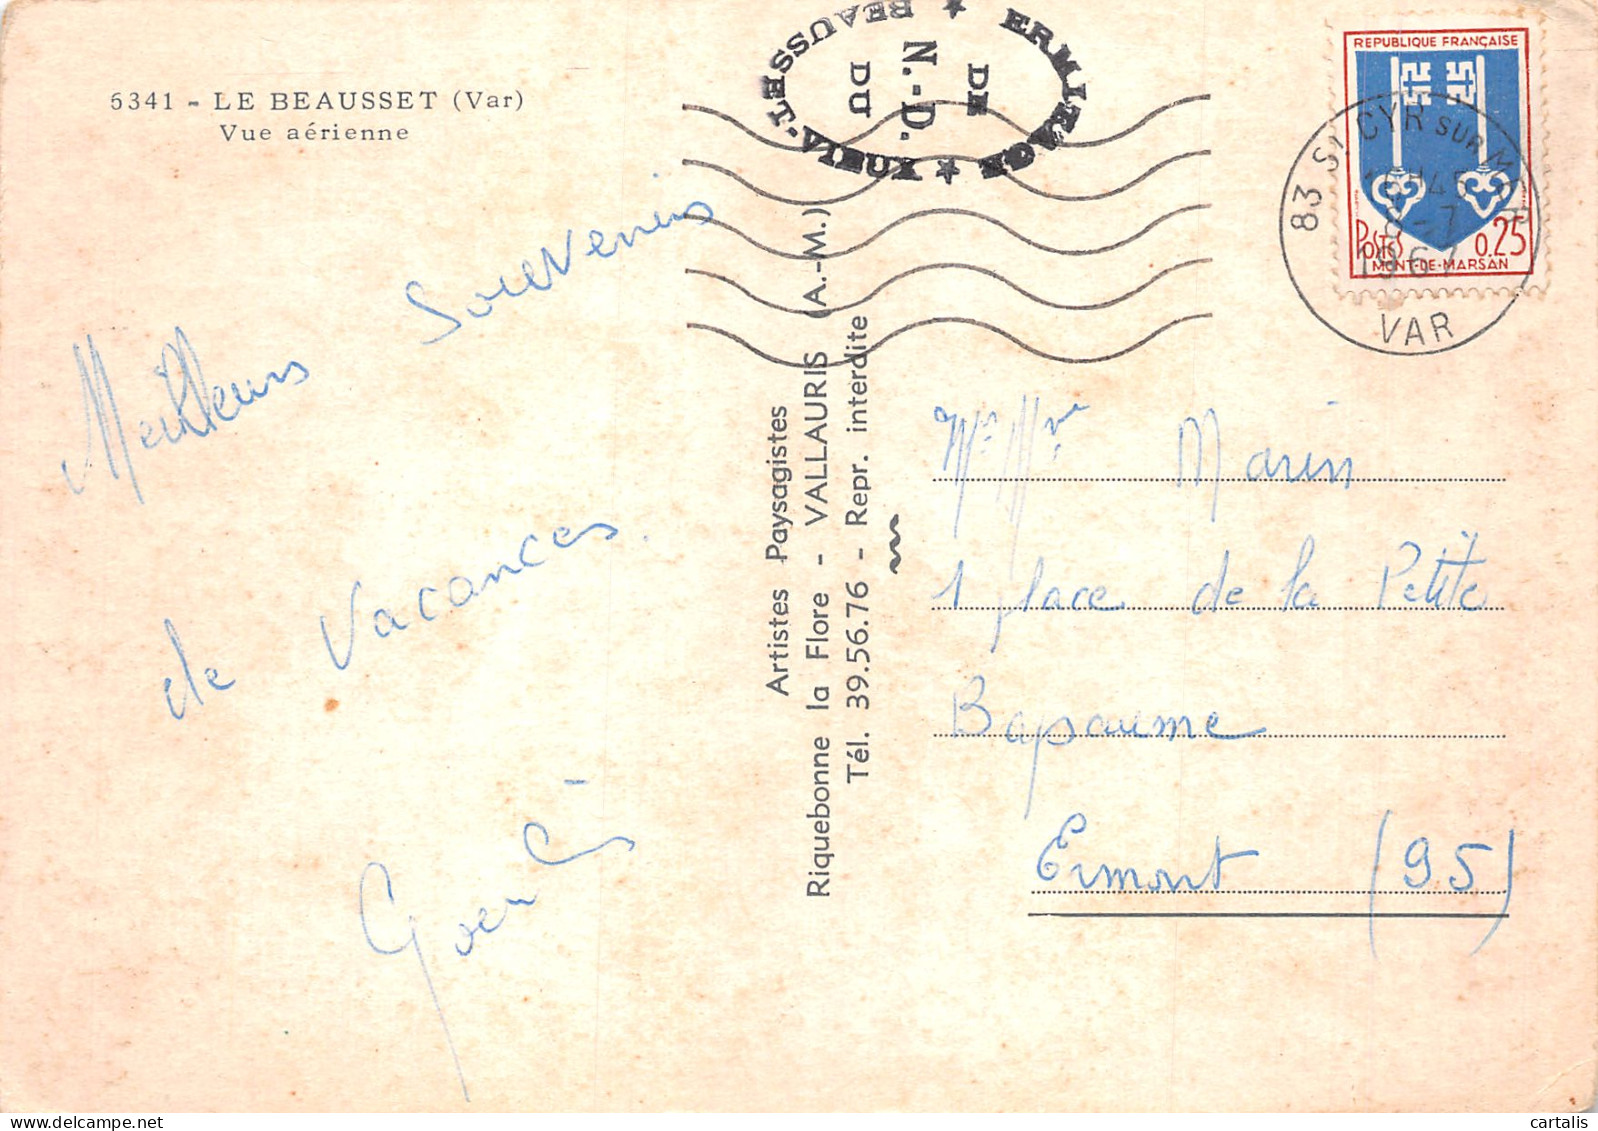 5341 - LE BEAUSSET (Var)
Vue aérienne
Meilleurs Souvenirs
de Vacances.
ERMITAGE ★ VIEUX
DE
N.-D.
DU
BEAUSSET ★
Artistes Paysagistes
Riquebonne la Flore - VALLAURIS (A.-M.)
Tél. 39.56.76 - Repr. interdite
REPUBLIQUE FRANÇAISE
POSTES 0.25
MONT-DE-MARSAN
83 ST CYR SUR MER
8 - 7
1967
VAR
Mr Mme Marin
1 place de la Petite
Bapaume
Ermont (95)
cartalis